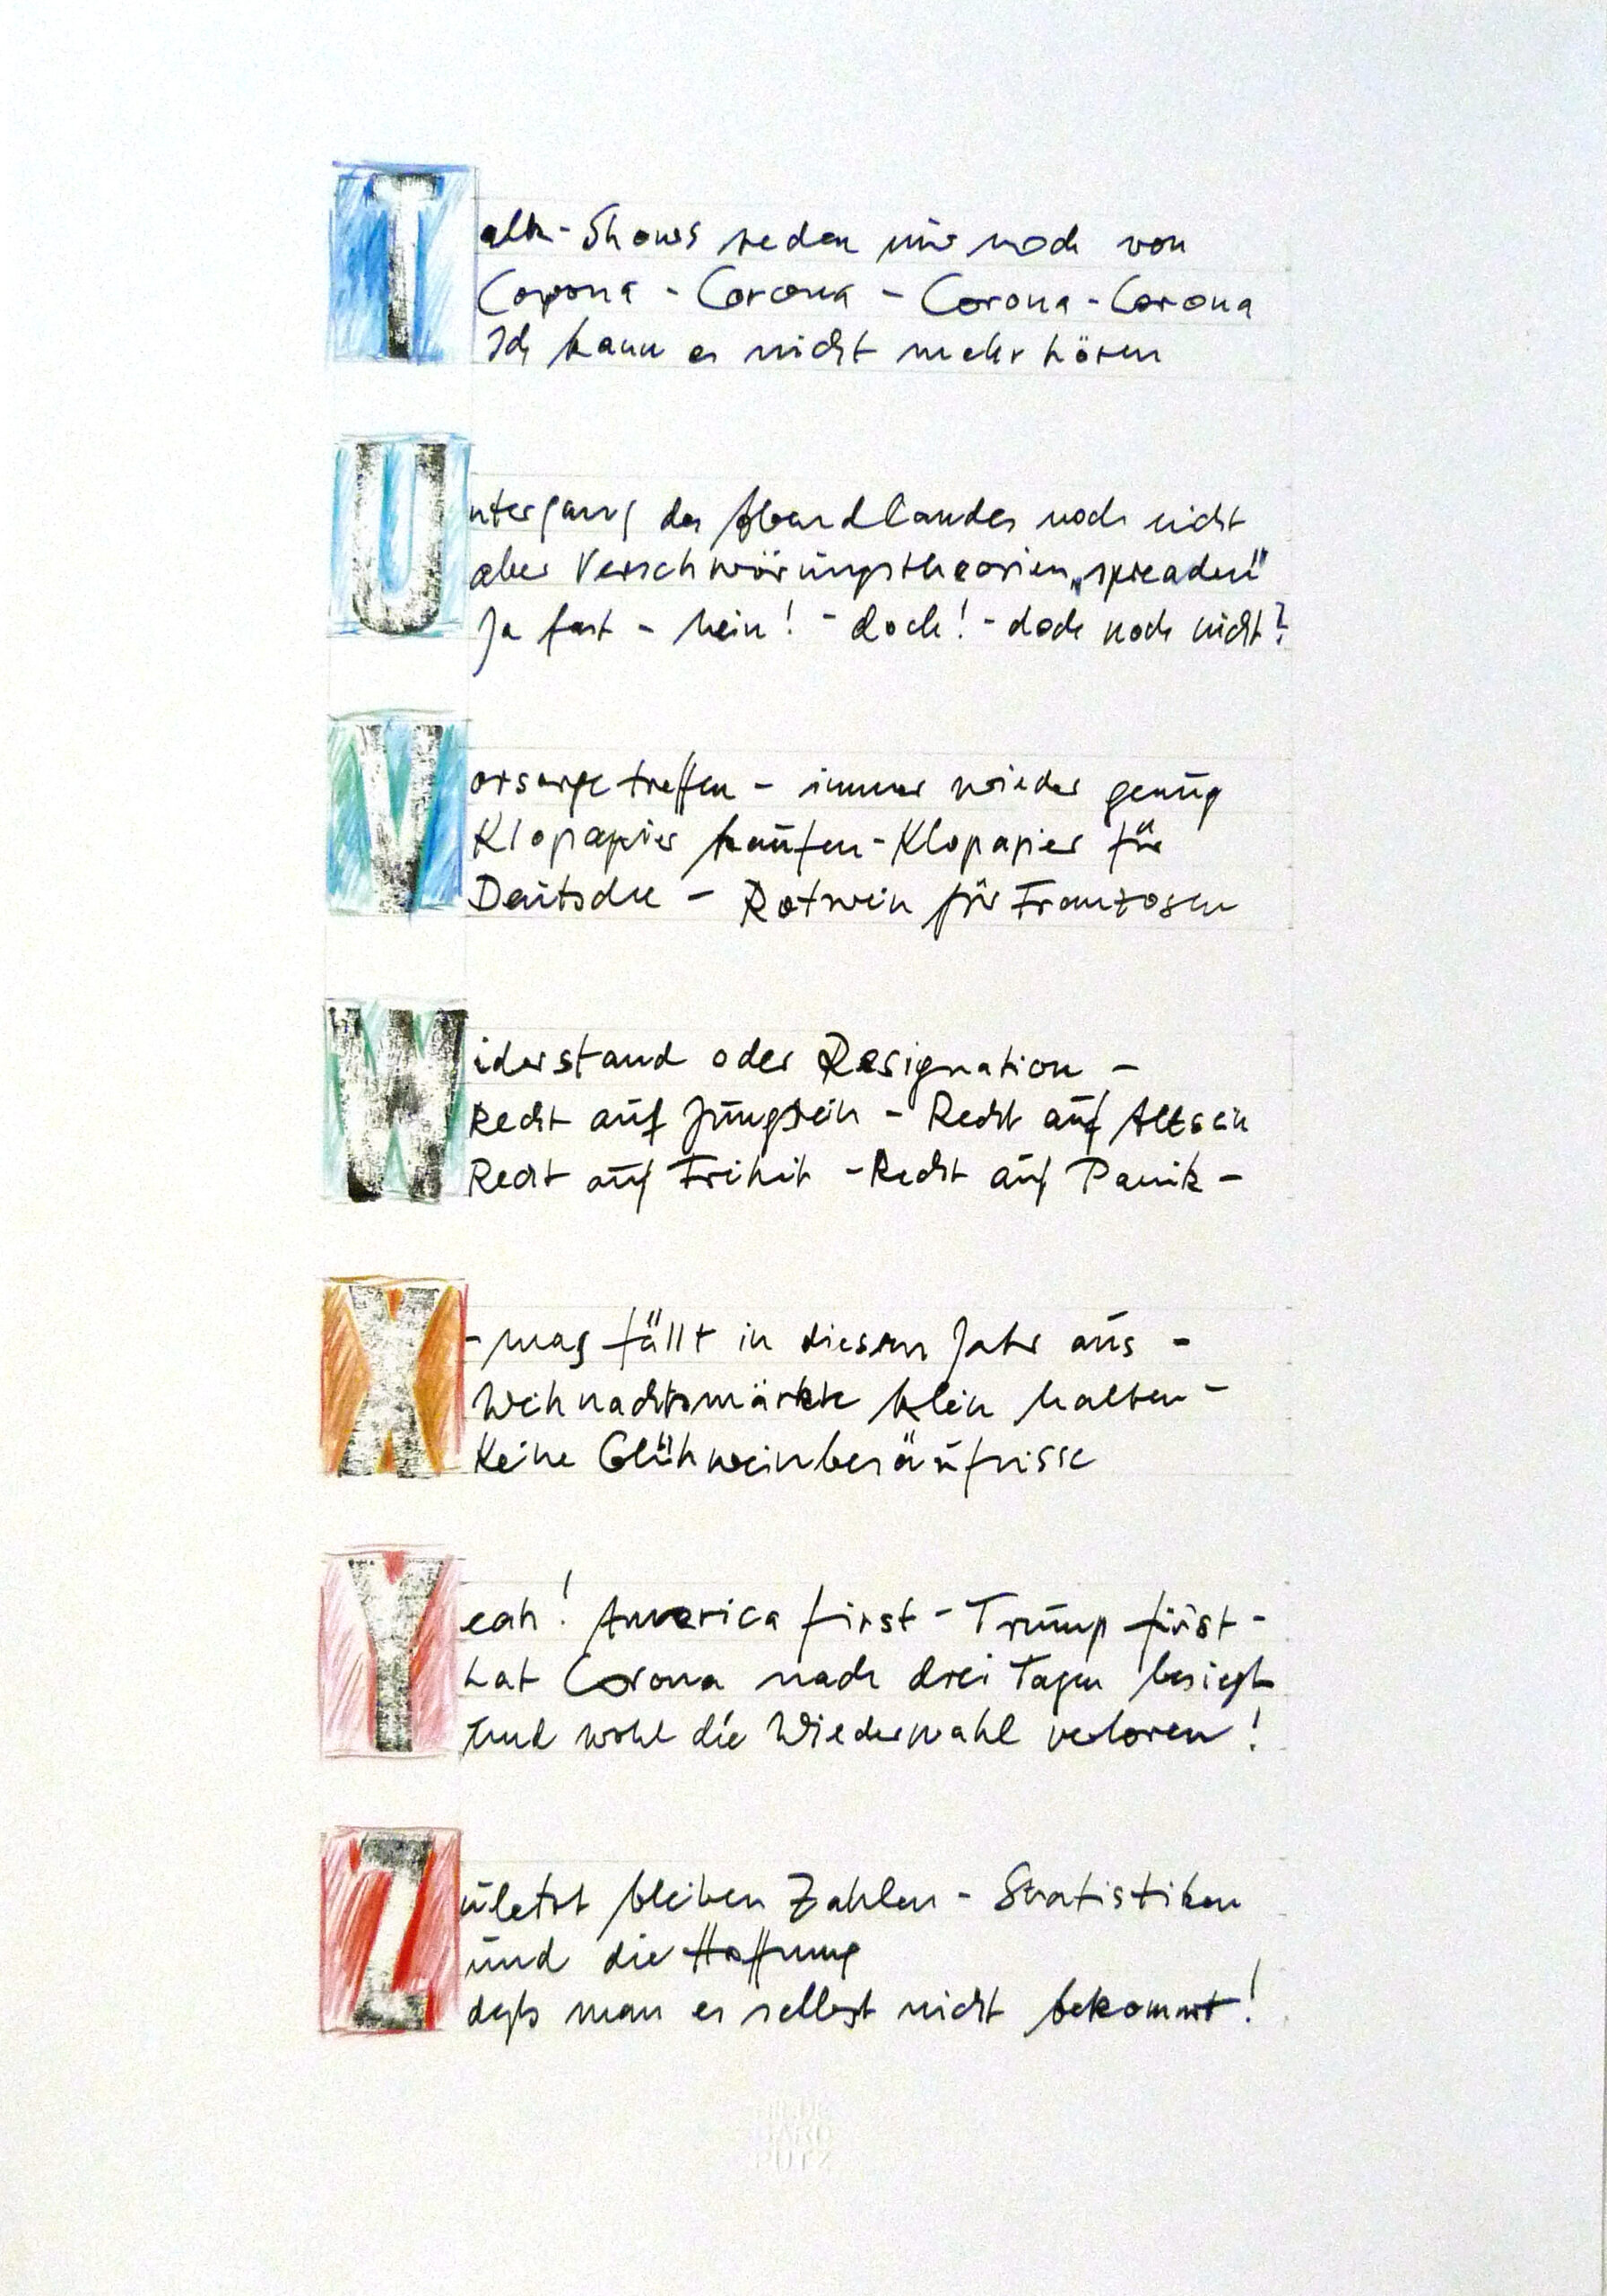 Talk-Shows reden nur noch von
Corona - Corona - Corona - Corona
Ich kann es nicht mehr hören
Untergang des Abendlandes noch nicht
aber Verschwörungstheorien „spreaden“
Ja fast - Nein! - doch! - doch noch nicht?
Vorsorge treffen - immer wieder genug
Klopapier kaufen - Klopapier für
Deutsche - Rotwein für Franzosen
Widerstand oder Resignation -
Recht auf Jungsein - Recht auf Altsein
Recht auf Freiheit - Recht auf Panik -
X-mas fällt in diesem Jahr aus -
Weihnachtsmärkte klein halten -
Keine Glühweinbesäufnisse
Yeah! America first - Trump first -
hat Corona nach drei Tagen besiegt
Und wohl die Wiederwahl verloren!
Zuletzt bleiben Zahlen - Statistiken
und die Hoffnung
daß man es selbst nicht bekommt!